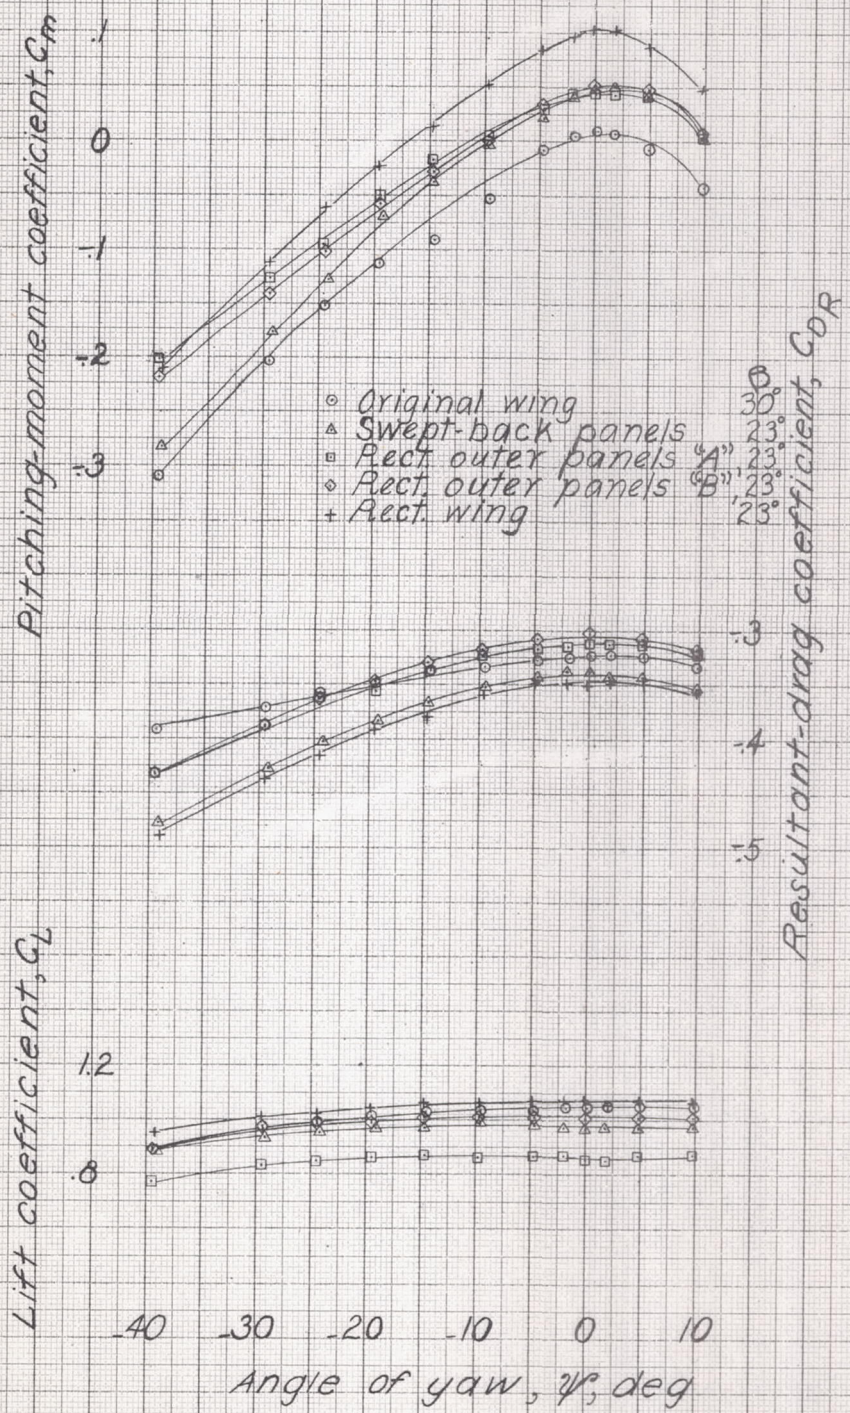 Pitching-moment coefficient, Cm
.1
0
-.1
-.2
-.3
β
Original wing 30°
Swept-back panels 23°
Rect outer panels "A" 23°
Rect. outer panels "B", 23°
Rect. wing 23°
Resultant-drag coefficient, CDR
-.3
-.4
-.5
Lift coefficient, CL
1.2
.8
-40 -30 -20 -10 0 10
Angle of yaw, ψ, deg